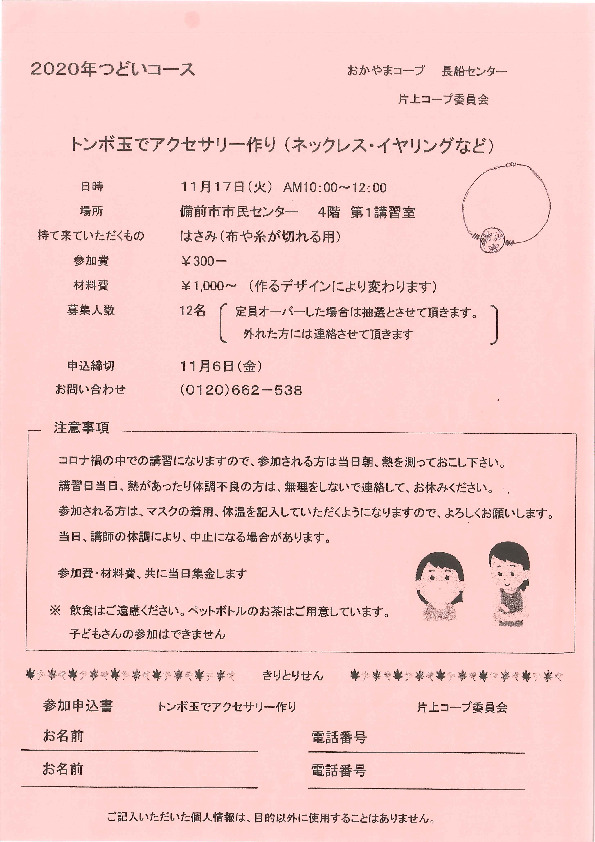 2020年つどいコース
おかやまコープ 長船センター
片上コープ委員会
トンボ玉でアクセサリー作り（ネックレス・イヤリングなど）
日時 11月17日(火) AM10:00～12:00
場所 備前市市民センター 4階 第1講習室
持て来ていただくもの はさみ(布や糸が切れる用)
参加費 ￥300－
材料費 ￥1,000～ (作るデザインにより変わります)
募集人数 12名 定員オーバーした場合は抽選とさせて頂きます。
外れた方には連絡させて頂きます
申込締切 11月6日(金)
お問い合わせ (0120)662－538
注意事項
コロナ禍の中での講習になりますので、参加される方は当日朝、熱を測っておこし下さい。
講習日当日、熱があったり体調不良の方は、無理をしないで連絡して、お休みください。
参加される方は、マスクの着用、体温を記入していただくようになりますので、よろしくお願いします。
当日、講師の体調により、中止になる場合があります。
参加費・材料費、共に当日集金します
※ 飲食はご遠慮ください。ペットボトルのお茶はご用意しています。
子どもさんの参加はできません
きりとりせん
参加申込書 トンボ玉でアクセサリー作り 片上コープ委員会
お名前 電話番号
お名前 電話番号
ご記入いただいた個人情報は、目的以外に使用することはありません。